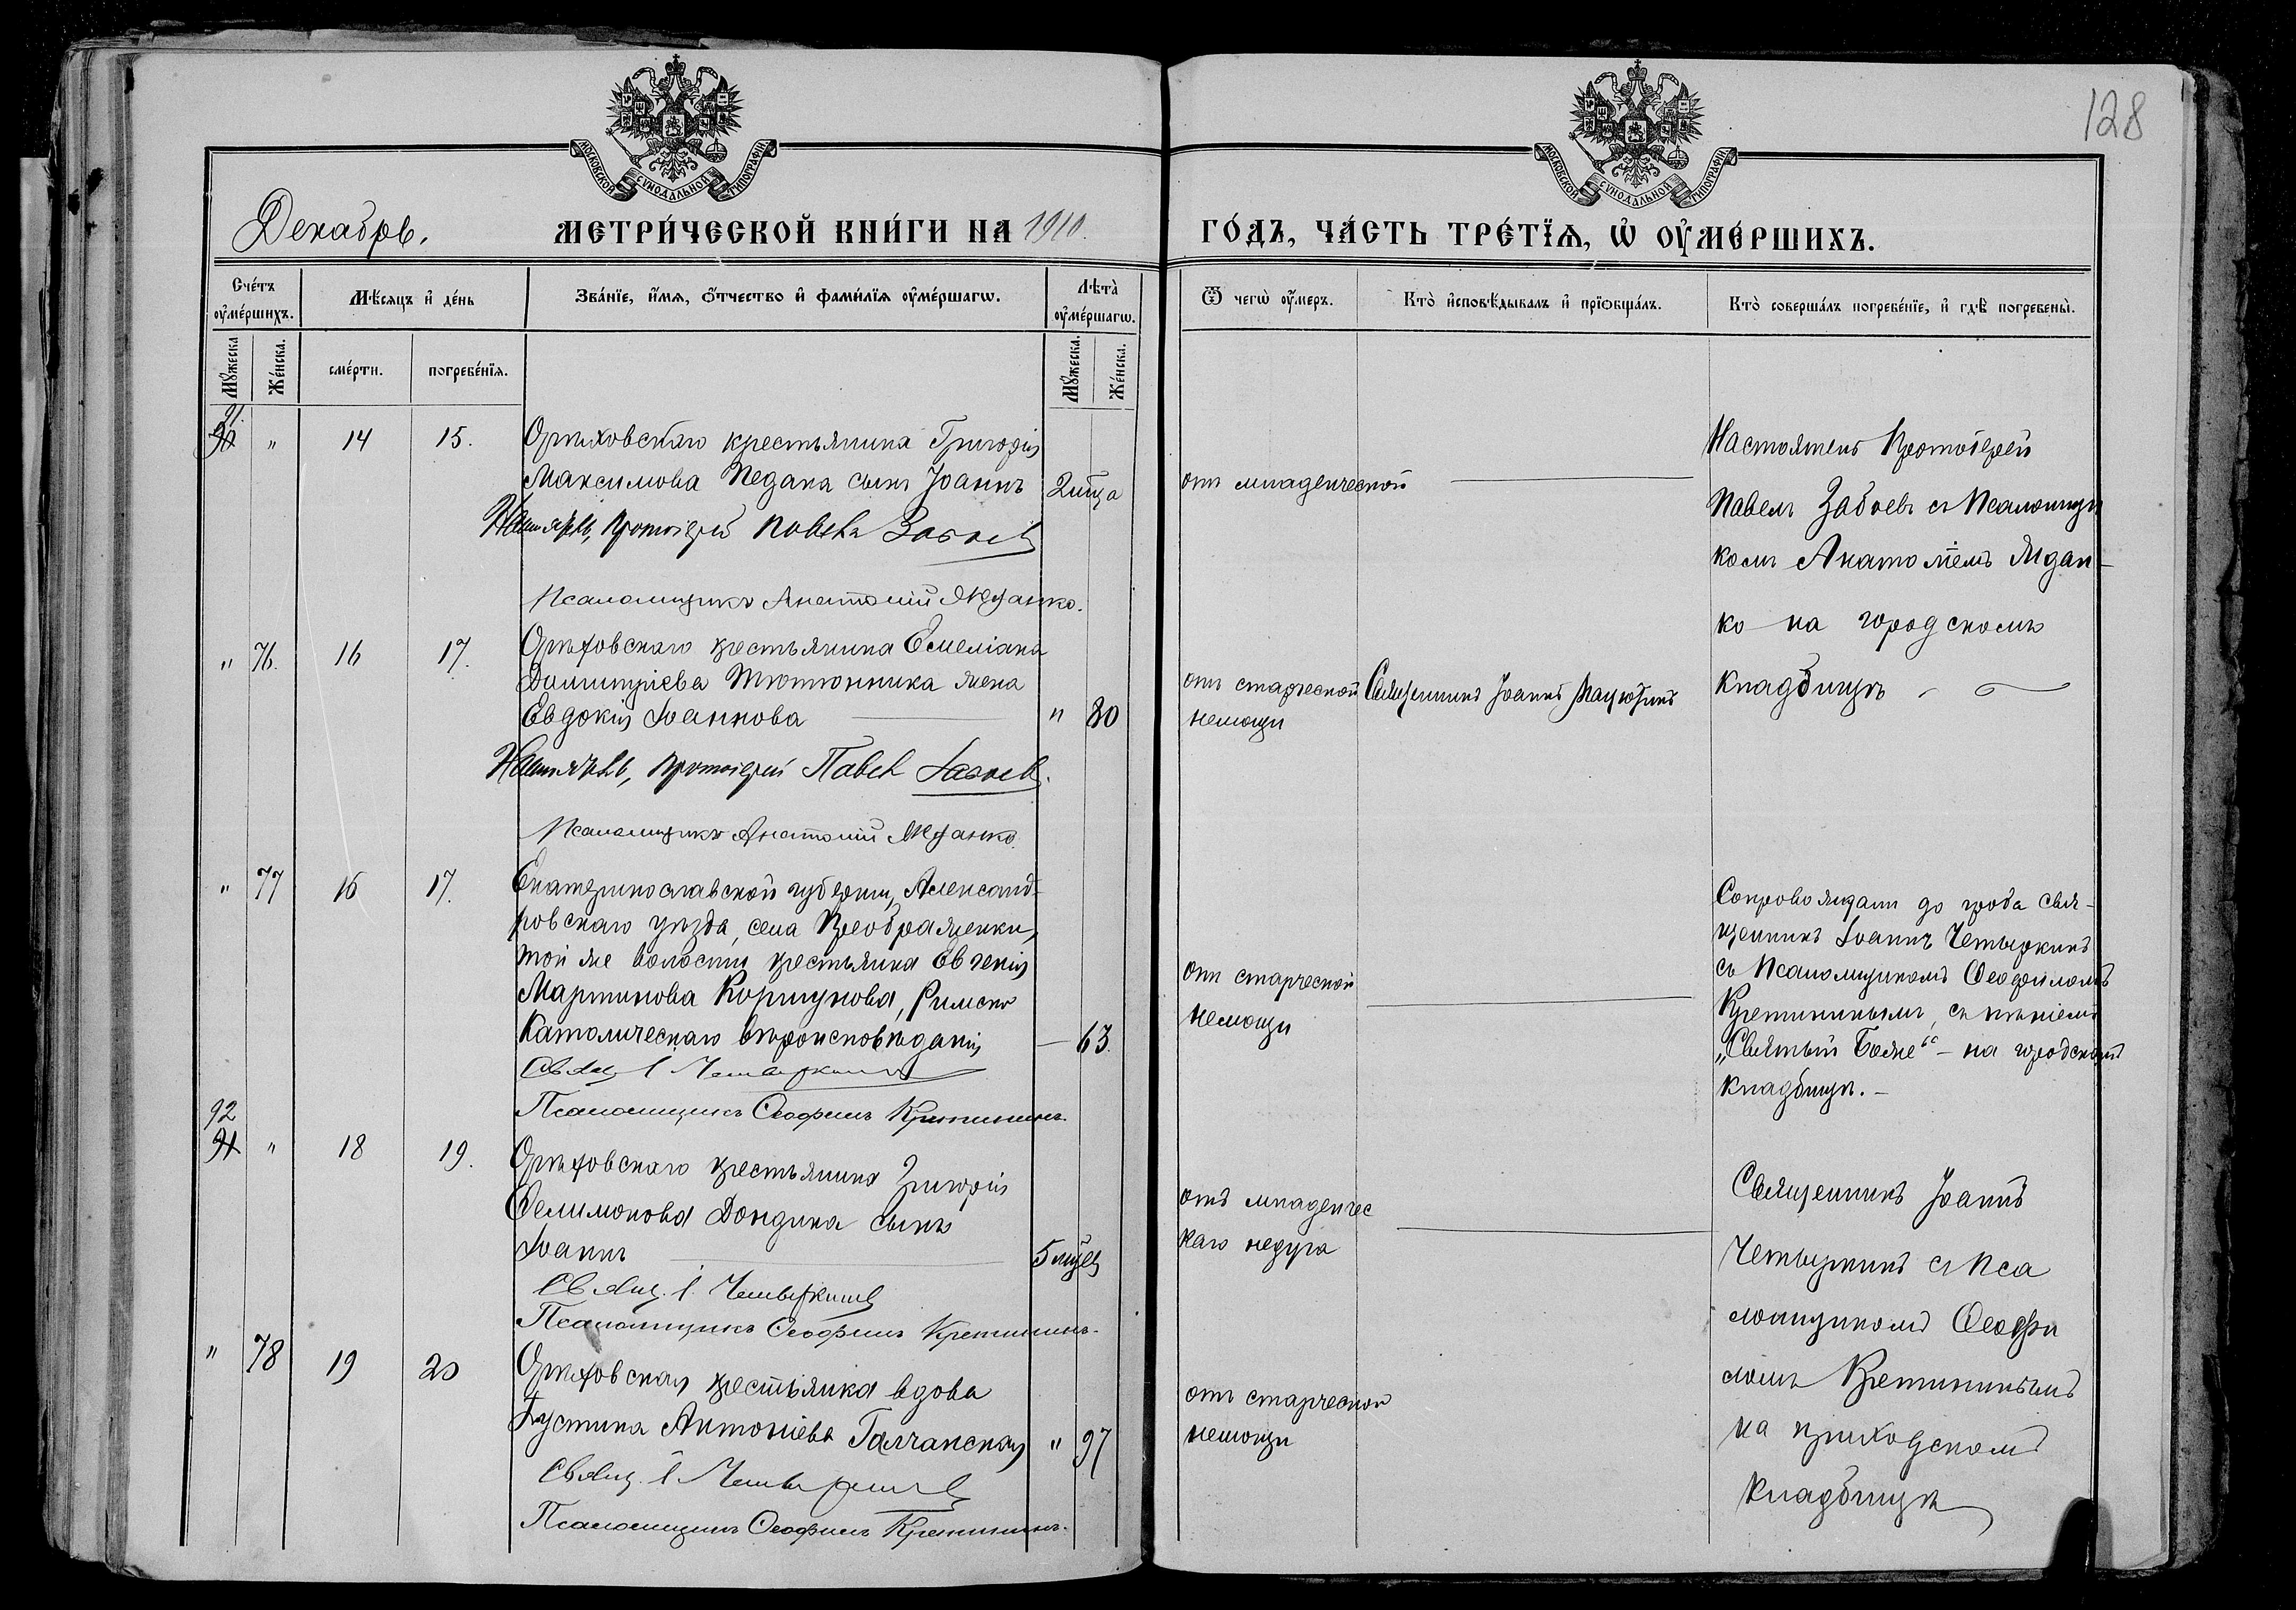 128
МОСКОВСКОЙ СѴНОДАЛЬНОЙ ТИПОГРАФІИ
МОСКОВСКОЙ СѴНОДАЛЬНОЙ ТИПОГРАФІИ
Декабрь.
МЕТРИ́ЧЕСКОЙ КНИ́ГИ НА 1910.
ГО́ДЪ, ЧА́СТЬ ТРЕ́ТЇѦ, Ѡ҆ ОУ҆МЕ́РШИХЪ.
Сче́тъ оу҆ме́ршихъ.
Мѣ́сяцъ и҆ де́нь
Зва́нїе, и҆́мя, ѻ҆́тчество и҆ фами́лїя оу҆ме́ршагѡ.
Лѣ́та оу҆ме́ршагѡ.
Ѿ чегѡ̀ оу҆́меръ.
Кто̀ и҆сповѣ́дывалъ и҆ прїѡбща́лъ.
Кто̀ соверша́лъ погребе́нїе, и҆ гдѣ̀ погребены̀.
Мꙋ́жеска
Же́нска.
сме́рти.
погребе́нїя.
Мꙋ́жеска.
Же́нска.
91.
90 " 14 15. Орѣховскаго крестьянина Григорія
Максимова Педана сынъ Іоаннъ 2 м͠ца
Настоятель, Протоіерей Павелъ Забоев
Псаломщикъ Анатолій Жданко.
отъ младенческой
Настоятель Протоіерей
Павелъ Забоевъ съ Псаломщи
комъ Анатоліемъ Ждан-
ко на городскомъ
кладбищѣ
" 76. 16 17. Орѣховскаго крестьянина Емеліана
Димитріева Тютюнника жена
Евдокія Іоаннова " 80
Настоятель, Протоіерей Павел Забоев.
Псаломщикъ Анатолій Жданко.
отъ старческой
немощи
Священникъ Іоаннъ
" 77 16 17. Екатеринославской губерніи, Александ-
ровскаго уѣзда, села Преображенки,
той же волости крестьянка Евгенія
Мартинова Коршунова, Римско
Католическаго вѣроисповѣданія — 63.
Свящ. І Четыркинъ
Псаломщикъ Ѳеофилъ Кретининъ.
отъ старческой
немощи
Сопровождали до гроба свя-
щенникъ Іоаннъ Четыркинъ
съ Псаломщикомъ Ѳеофиломъ
Кретининымъ, съ пѣніемъ
„Святый Боже“ – на городскомъ
кладбищѣ. –
92
91 " 18 19. Орѣховскаго крестьянина Григорія
Филимонова Дондика сынъ
Іоаннъ 5 м͠цев
Свящ. І. Четыркинъ
Псаломщикъ Ѳеофилъ Кретининъ.
отъ младенчес
каго недуга
Священникъ Іоаннъ
Четыркинъ съ Пса
ломщикомъ Ѳеофи
ломъ Кретининымъ
на приходскомъ
кладбищѣ
" 78 19 20 Орѣховская крестьянка вдова
Іустина Антоніева Галчанская " 97
Свящ. І Четыркинъ
Псаломщикъ Ѳеофилъ Кретининъ.
отъ старческой
немощи